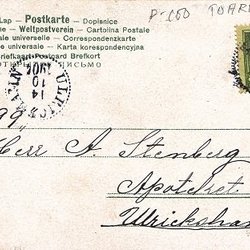 -Lap — Postkarte — Dopisnice
— Weltpostverein — Cartolina Postale
universelle — Correspondenzkarte
e universelle — Karta korespondencyjna
Briefkaart-Postcard Brefkort
ПИСЬМО
P-100
1901
10
14
"
Herr A. Stenberg
Apotheket.
Ulricehamn